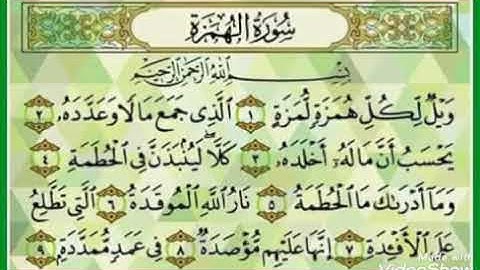 سُورَةُ الهُمَزَةِ
بِسْمِ اللَّهِ الرَّحْمَٰنِ الرَّحِيمِ
وَيْلٌ لِّكُلِّ هُمَزَةٍ لُّمَزَةٍ ١ الَّذِى جَمَعَ مَالًا وَعَدَّدَهُۥ ٢
يَحْسَبُ أَنَّ مَالَهُۥٓ أَخْلَدَهُۥ ٣ كَلَّا ۖ لَيُنۢبَذَنَّ فِى الْحُطَمَةِ ٤
وَمَآ أَدْرَىٰكَ مَا الْحُطَمَةُ ٥ نَارُ اللَّهِ الْمُوقَدَةُ ٦ الَّتِى تَطَّلِعُ
عَلَى الْأَفْـِٔدَةِ ٧ إِنَّهَا عَلَيْهِم مُّؤْصَدَةٌ ٨ فِى عَمَدٍ مُّمَدَّدَةٍۭ ٩
Made with
VideoShow